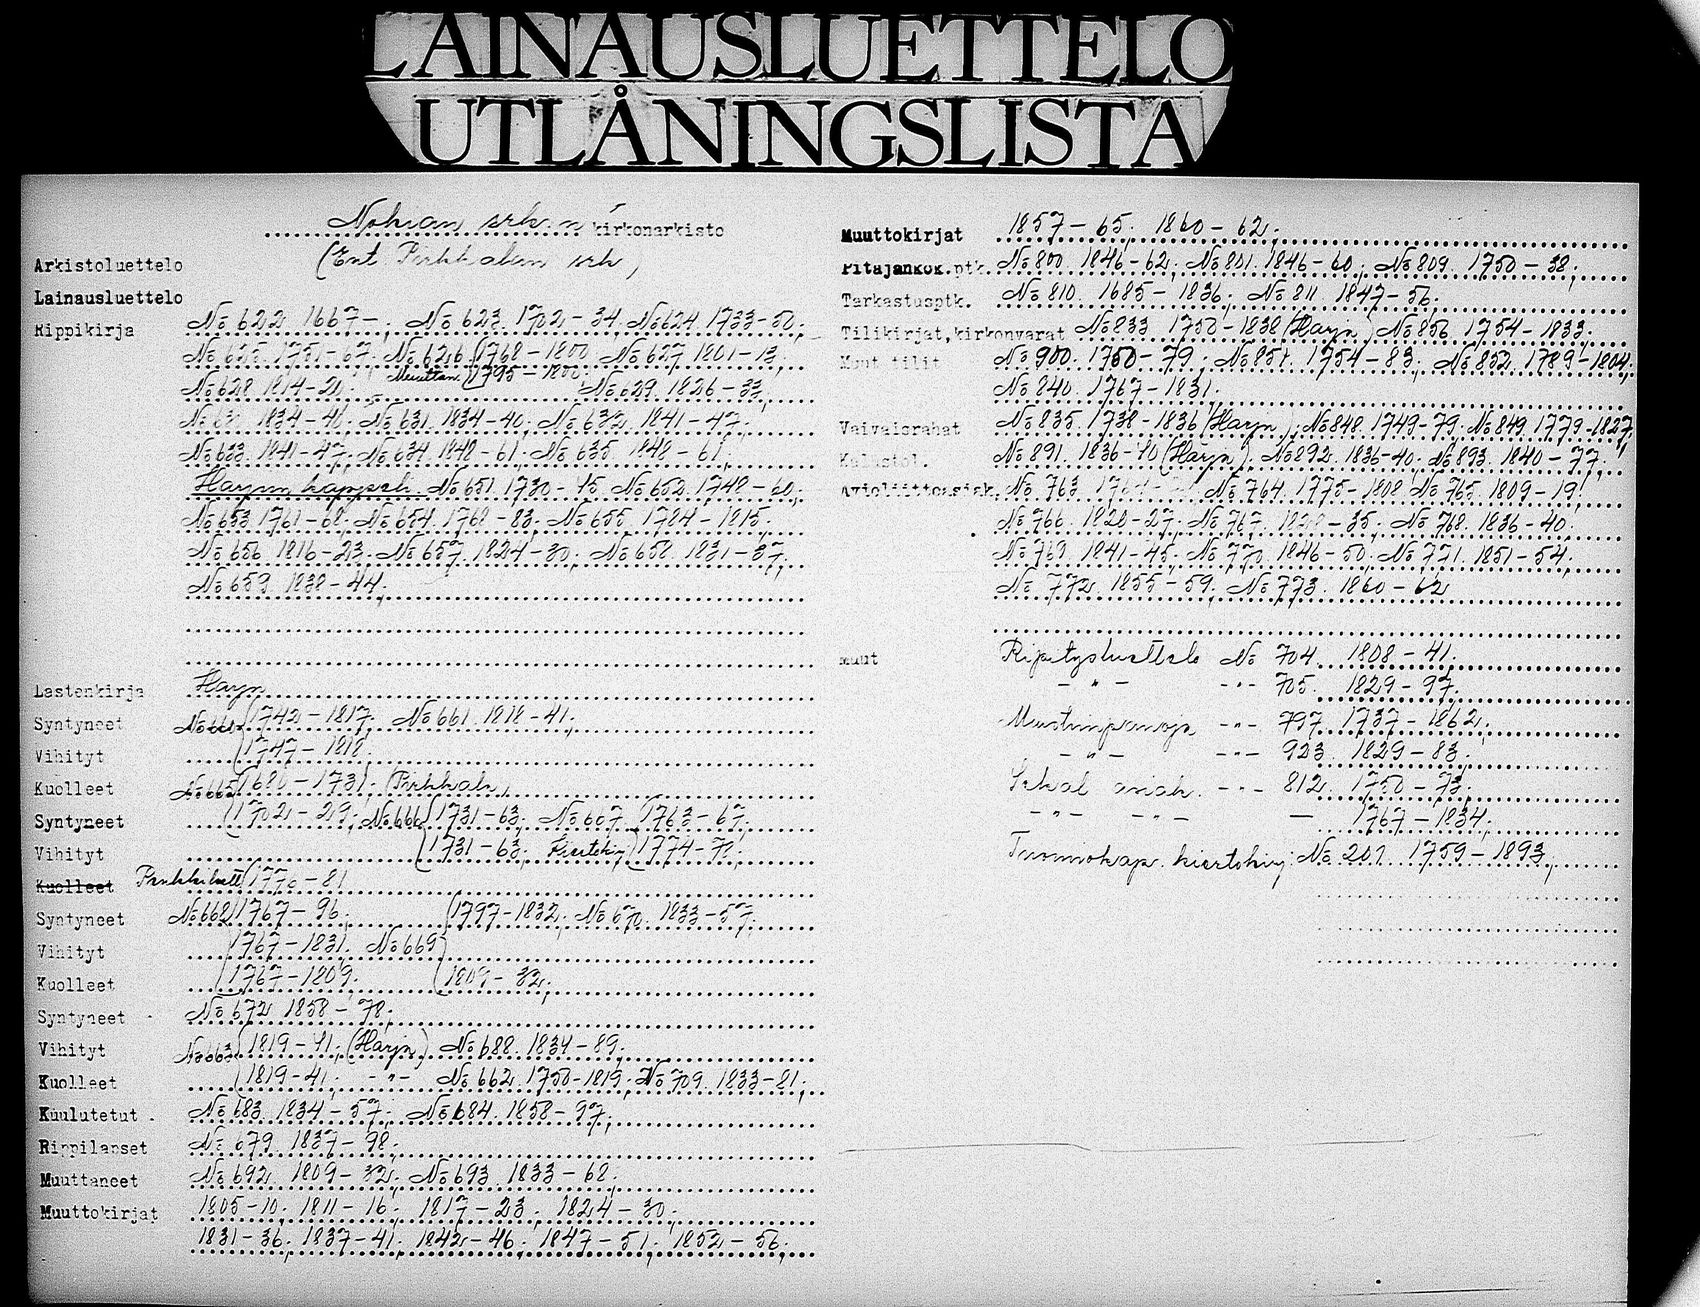 LAINAUSLUETTELO
UTLÅNINGSLISTA
Nokian srk:n kirkonarkisto
Arkistoluettelo (Ent. Pirkkalan srk)
Lainausluettelo
Rippikirja No 622 1667-; No 623. 1702-34; No 624. 1733-50;
No 625. 1751-67; No 626 (1768-1800 No 627 1801-13;
Muuttan. (1795-1800;
No 628 1814-21; No 629. 1826-33,
1834-40; No 631. 1834-40; No 632. 1841-47;
No 633. 1841-47; No 634. 1848-61; No 635 1848-61;
Harjun kappeli. No 651. 1730-45. No 652. 1748-60;
No 653 1761-68; No 654. 1768-83; No 655. 1784-1815;
No 656 1816-23; No 657. 1824-30; No 658. 1831-37;
No 659. 1838-44;
Lastenkirja Harjn
Syntyneet (1742-1817; No 661. 1818-41;
Vihityt (1747-1818.
Kuolleet No 665 (1686-1731; (Pirkkala)
Syntyneet (1702-29; No 666 (1731-63; No 667. (1763-67;
Vihityt (1731-63; (1774-78;
Kuolleet (1776-81
Syntyneet No 668 (1767-96; (1797-1832; No 670. 1833-57.
Vihityt (1767-1831; No 669
Kuolleet (1767-1809. (1809-32;
Syntyneet No 672 1858-78;
Vihityt No 663 (1819-41; (Harjn) No 688. 1834-89;
Kuolleet (1819-41; -"- No 662. 1750-1819; No 709. 1833-81;
Kuulutetut No 683. 1834-57; No 684. 1858-97;
Rippilapset No 679. 1837-98;
Muuttaneet No 692. 1809-32; No 693. 1833-68;
Muuttokirjat 1805-10; 1811-16; 1817-23; 1824-30;
1831-36; 1837-41; 1842-46; 1847-51; 1852-56;
Muuttokirjat 1857-65; 1860-62;
Pitäjänkok.ptk. No 800. 1846-62; No 801. 1846-60; No 809. 1750-38;
Tarkastusptk. No 810. 1685-1836; No 811. 1847-56;
Tilikirjat,kirkonvarat No 833 1750-1838 (Harjn) No 856 1754-1833;
Muut tilit No 900. 1750-79; No 851. 1754-83; No 852. 1789-1804;
No 840. 1767-1831;
Vaivaisrahat No 835. 1738-1836 (Harjn); No 848. 1749-79; No 849. 1779-1827,
No 891. 1836-40 (Harjn); No 892. 1836-40; No 893. 1840-77;
Avioliittoasiak. No 763 No 764. 1775-1808 No 765. 1809-19;
No 766. 1820-27; No 767. -35; No 768. 1836-40;
No 769. 1841-45; No 770. 1846-50; No 771. 1851-54;
No 772. 1855-59; No 773. 1860-62
Muut Ripitysluettelo No 704. 1808-41;
-"- -"- 705. 1829-97;
Muistiinpanoja -"- 797. 1737-1862;
-"- -"- 923. 1829-83;
Sekal. asiak. -"- 812. 1750-73;
-"- -"- — 1767-1834;
Tuomiokap. kiertokirj. No 201. 1759-1893;